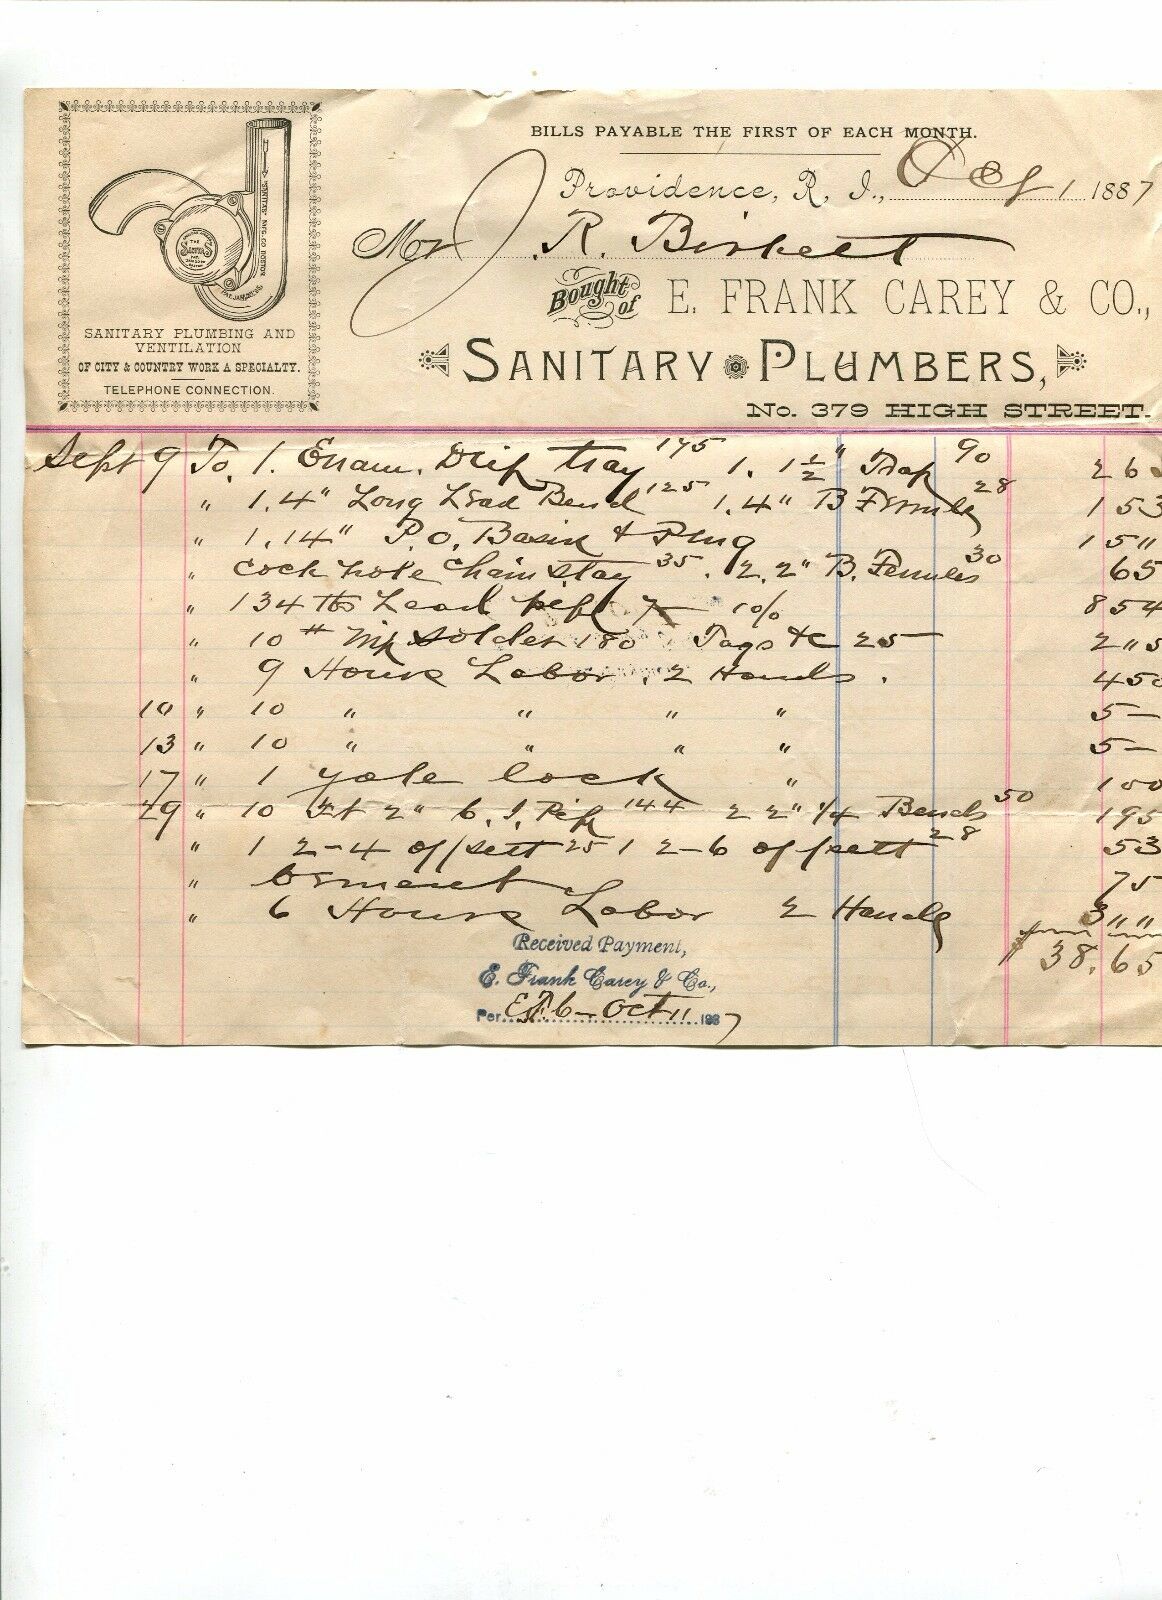 BILLS PAYABLE THE FIRST OF EACH MONTH.
Providence, R. I., Oct 1 1887
Mr J. R. Birkett
Bought of E. FRANK CAREY & CO.,
SANITARY PLUMBERS,
No. 379 HIGH STREET.
SANITARY PLUMBING AND
VENTILATION
OF CITY & COUNTRY WORK A SPECIALTY.
TELEPHONE CONNECTION.
Sept 9 To 1. Enam. Drip tray 175 1. 1 1/2" Trap 90 2 6
" 1. 4" Long Lead Bend 125 1. 4" B Ferrule 28 1 53
" 1. 14" P.O. Basin & Plug 1 5 "
" Cock hole Chain stay 35. 2. 2" B. Ferrules 30 65
" 134 lbs Lead pipe 7 10% 8 54
" 10 # Solder 180 Tags &c 25 2 " 5
" 9 Hours Labor. 2 Hands. 4 50
10 " 10 " " " " 5 —
13 " 10 " " " " 5 —
17 " 1 Yale lock " 1 00
29 " 10 Ft 2" C. I. Pipe 144 2 2" 1/4 Bends 50 1 95
" 1 2-4 offsett 25 1 2-6 offsett 28 53
" Cement 75
" 6 Hours Labor 2 Hands 3 " "
$ 38.65
Received Payment,
E. Frank Carey & Co.,
Per Oct 11 1887